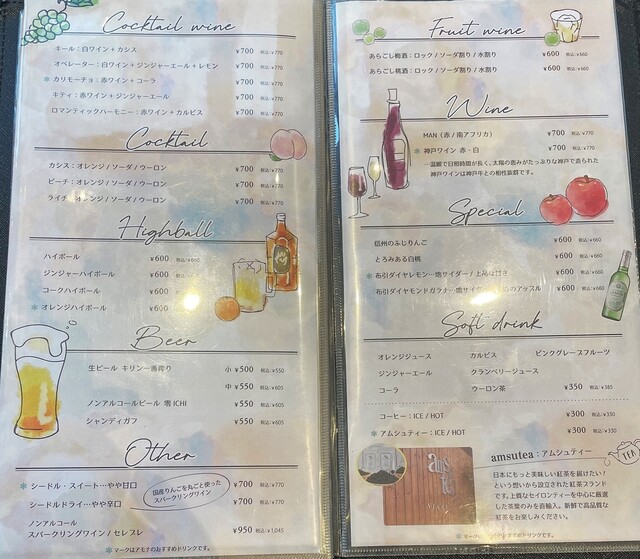 Cocktail wine
キール：白ワイン + カシス ¥700 税込:¥770
オペレーター：白ワイン + ジンジャーエール + レモン ¥700 税込:¥770
＊カリモーチョ：赤ワイン + コーラ ¥700 税込:¥770
キティ：赤ワイン + ジンジャーエール ¥700 税込:¥770
ロマンティックハーモニー：赤ワイン + カルピス ¥700 税込:¥770
Cocktail
カシス：オレンジ / ソーダ / ウーロン ¥700 税込:¥770
ピーチ：オレンジ / ソーダ / ウーロン ¥700 税込:¥770
ライチ：オレンジ / ソーダ / ウーロン ¥700 税込:¥770
Highball
ハイボール ¥600 税込:¥660
ジンジャーハイボール ¥600
コークハイボール ¥600
＊オレンジハイボール ¥600
Beer
生ビール キリン一番搾り 小 ¥500 税込:¥550
中 ¥550 税込:¥605
ノンアルコールビール 零 ICHI ¥550 税込:¥605
シャンディガフ ¥550 税込:¥605
Other
＊シードル・スイート…やや甘口 ¥700 税込:¥770
国産りんごを丸ごと使った
スパークリングワイン
シードルドライ…やや辛口 ¥700 税込:¥770
ノンアルコール
スパークリングワイン / セレブレ ¥950 税込:¥1,045
＊マークはアモナのおすすめドリンクです。
Fruit wine
あらごし梅酒：ロック / ソーダ割り / 水割り ¥600 税込:¥660
あらごし桃酒：ロック / ソーダ割り / 水割り ¥600 税込:¥660
Wine
MAN (赤 / 南アフリカ) ¥700 税込:¥770
＊神戸ワイン 赤・白 ¥700 税込:¥770
…温暖で日照時間が長く、太陽の恵みがたっぷりな神戸で造られた
神戸ワインは神戸牛との相性抜群です。
Special
信州のふじりんご ¥600 税込:¥660
とろみある白桃 ¥600 税込:¥660
＊布引ダイヤモンド…地サイダー / 上品な甘さ ¥600 税込:¥660
布引ダイヤモンドガラナ…地サイ のアップル ¥600 税込:¥660
Soft drink
オレンジジュース カルピス ピンクグレープフルーツ
ジンジャーエール クランベリージュース
コーラ ウーロン茶 ¥350 税込:¥385
コーヒー：ICE / HOT ¥300 税込:¥330
＊アムシュティー：ICE / HOT ¥300 税込:¥330
amsutea：アムシュティー
日本にもっと美味しい紅茶を届けたい！
という想いから設立された紅茶ブランド
です。上質なセイロンティーを中心に厳選
した茶葉のみを直輸入。新鮮で高品質な
紅茶をお楽しみください。
TEA
ams
＊マークは おすすめドリンクです。